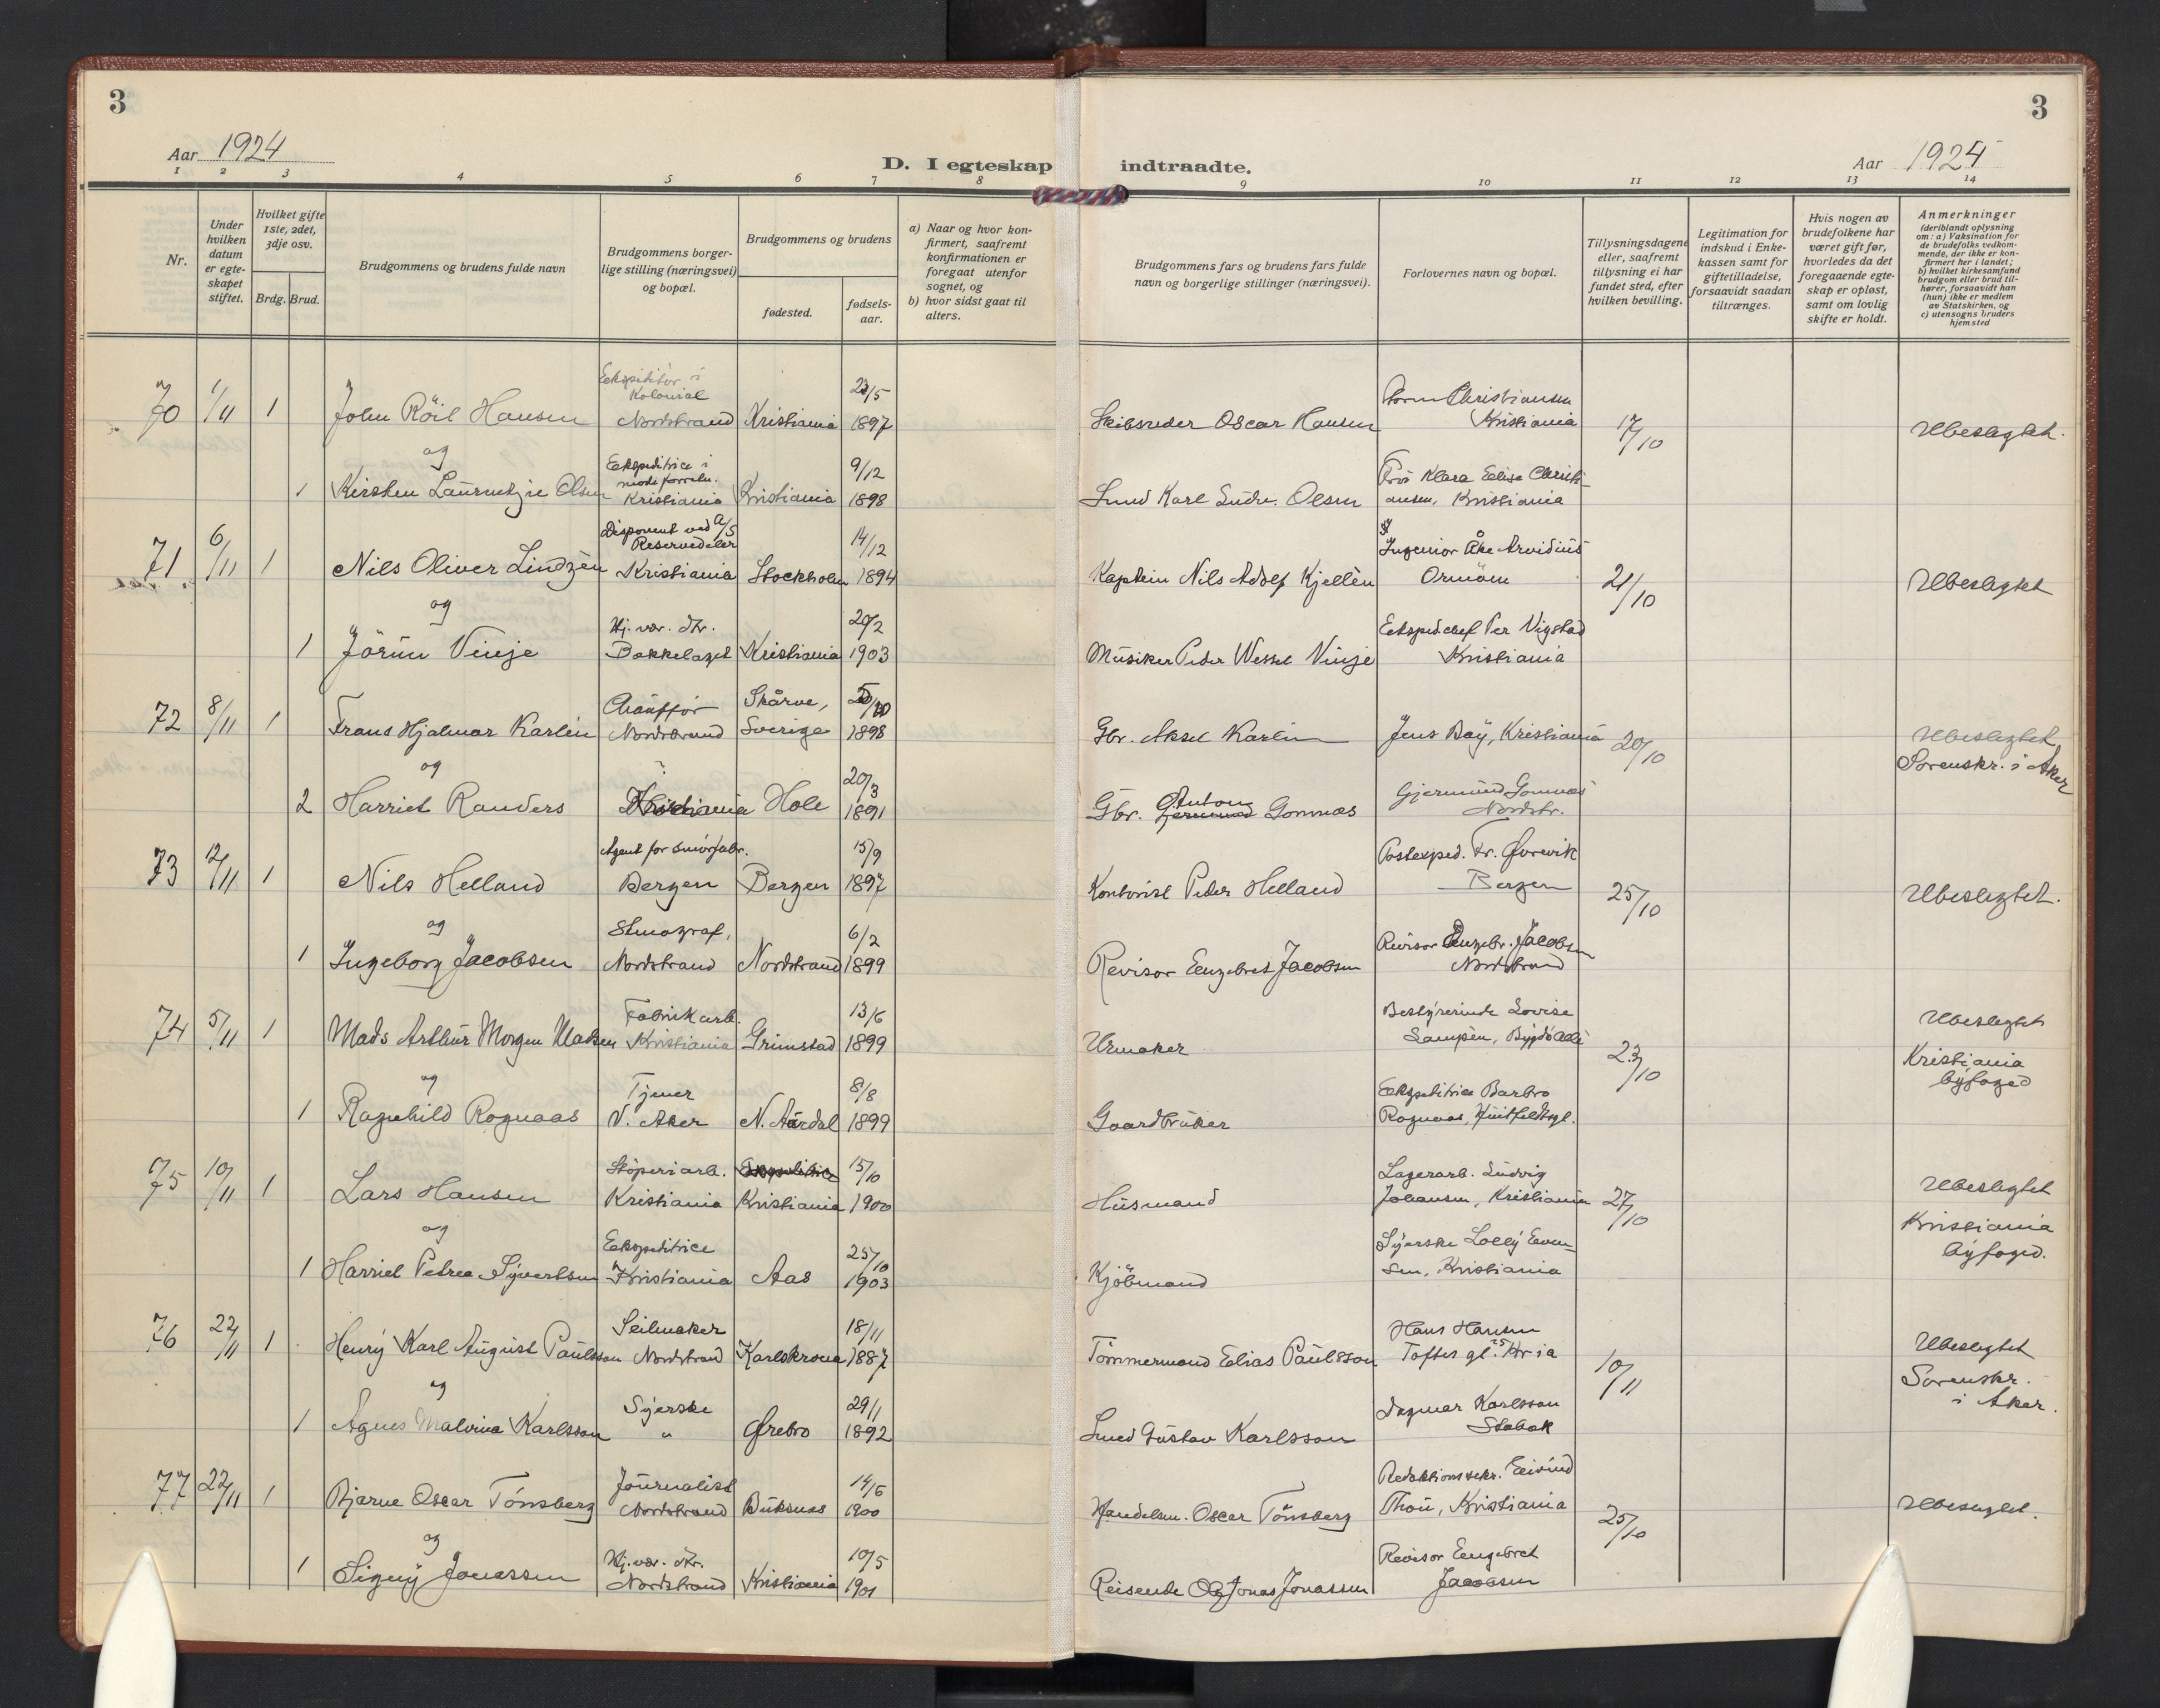 3
3
Aar 1924
D. I egteskap indtraadte.
Aar 1924
1 2 3 4 5 6 7 8 9 10 11 12 13 14
Nr.
Under hvilken datum er egteskapet stiftet.
Hvilket gifte 1ste, 2det, 3dje osv.
Brdg. Brud.
Brudgommens og brudens fulde navn
Brudgommens borgerlige stilling (næringsvei) og bopæl.
Brudgommens og brudens
fødested.
fødselsaar.
a) Naar og hvor konfirmert, saafremt konfirmationen er foregaat utenfor sognet, og
b) hvor sidst gaat til alters.
Brudgommens fars og brudens fars fulde navn og borgerlige stillinger (næringsvei).
Forlovernes navn og bopæl.
Tillysningsdagene eller, saafremt tillysning ei har fundet sted, efter hvilken bevilling.
Legitimation for indskud i Enkekassen samt for giftetilladelse, forsaavidt saadan tiltrænges.
Hvis nogen av brudefolkene har været gift før, hvorledes da det foregaaende egteskap er opløst, samt om lovlig skifte er holdt.
Anmerkninger (deriblandt oplysning om: a) Vaksination for de brudefolks vedkommende, der ikke er konfirmert her i landet; b) hvilket kirkesamfund brudgom eller brud tilhører, forsaavidt han (hun) ikke er medlem av Statskirken, og c) utensogns bruders hjemsted
70 1/11 1 John Röil Hansen Ekspeditör i Kolonial Nordstrand Kristiania 23/5 1897 Skibsreder Oscar Hansen Christiansen Kristiania 17/10 Ubeslegtet.
og
1 Kirsten Laurentzie Olsen Ekspeditrice i modeforretn. Kristiania Kristiania 9/12 1898 Smed Karl Ludv. Olsen Frö Klara Elise Christiansen, Kristiania
71 6/11 1 Nils Oliver Lindzèn Disponent ved A/S Reservedeler Kristiania Stockholm 14/12 1894 Kaptein Nils Adolf Kjellèn Ingeniör Åke Arvidius Ormöen 21/10 Ubeslegtet
og
1 Jörun Vinje Hj. vær. dtr. Bækkelaget Kristiania 20/2 1903 Musiker Peder Wessel Vinje Ekspedchef Per Vigstad Kristiania
72 8/11 1 Frans Hjalmar Karlin Chauffør Nordstrand Skårve, Sverige 1898 Gbr. Aksel Karlin Jens Böy, Kristiania 20/10 Ubeslegtet Sorenskr. i Aker
og
2 Harriet Randers Hole 20/3 1891 Gbr. Anton Gomnæs Gjermund Gomnæs Nordstr.
73 12/11 1 Nils Helland Agent for smörfabr. Bergen Bergen 15/9 1897 Kontorist Peder Helland Postexped. Fr. Øvrevik Bergen 25/10 Ubeslegtet.
og
1 Ingeborg Jacobsen Stenograf, Nordstrand Nordstrand 6/2 1899 Revisor Engebret Jacobsen Revisor Engebr. Jacobsen Nordstrand
74 5/11 1 Mads Arthur Morgen Madsen Fabrikarb. Kristiania Grimstad 13/6 1899 Urmaker Bestyrerinde Lovise Lampèn, Bygdö Allè 23/10 Ubeslegtet Kristiania byfoged
og
1 Ragnhild Rognaas Tjener V. Aker N. Aurdal 8/8 1899 Gaardbruker Ekspeditrice Barbro Rognaas, Huitfeldtsgt.
75 10/11 1 Lars Hansen Stöperiarb. Kristiania Kristiania 15/10 1900 Husmand Lagerarb. Ludvig Johansen, Kristiania 27/10 Ubeslegtet Kristiania byfoged.
og
1 Harriet Petrea Syvertsen Ekspeditrice Kristiania Aas 25/10 1903 Kjöbmand Syerske Lolly Evensen, Kristiania
76 22/11 1 Henry Karl August Paulsson Seilmaker Nordstrand Karlskrona 18/11 1887 Tömmermand Elias Paulsson Hans Hansen Toftes gt. 25 Kr.ia 10/11 Ubeslegtet Sorenskr. i Aker.
og
1 Agnes Malvina Karlsson Syerske " Ørebro 29/1 1892 Smed Gustav Karlsson Dagmar Karlsson Stabæk
77 22/11 1 Bjarne Oscar Tönsberg Journalist Nordstrand Buksnæs 14/6 1900 Handelsm. Oscar Tönsberg Redaktionssekr. Eivind Thon, Kristiania 25/10 Ubeslegtet.
og
1 Signy Jonassen Hj. vær. dtr. Nordstrand Kristiania 10/5 1901 Reisende Jonas Jonassen Revisor Engebret Jacobsen